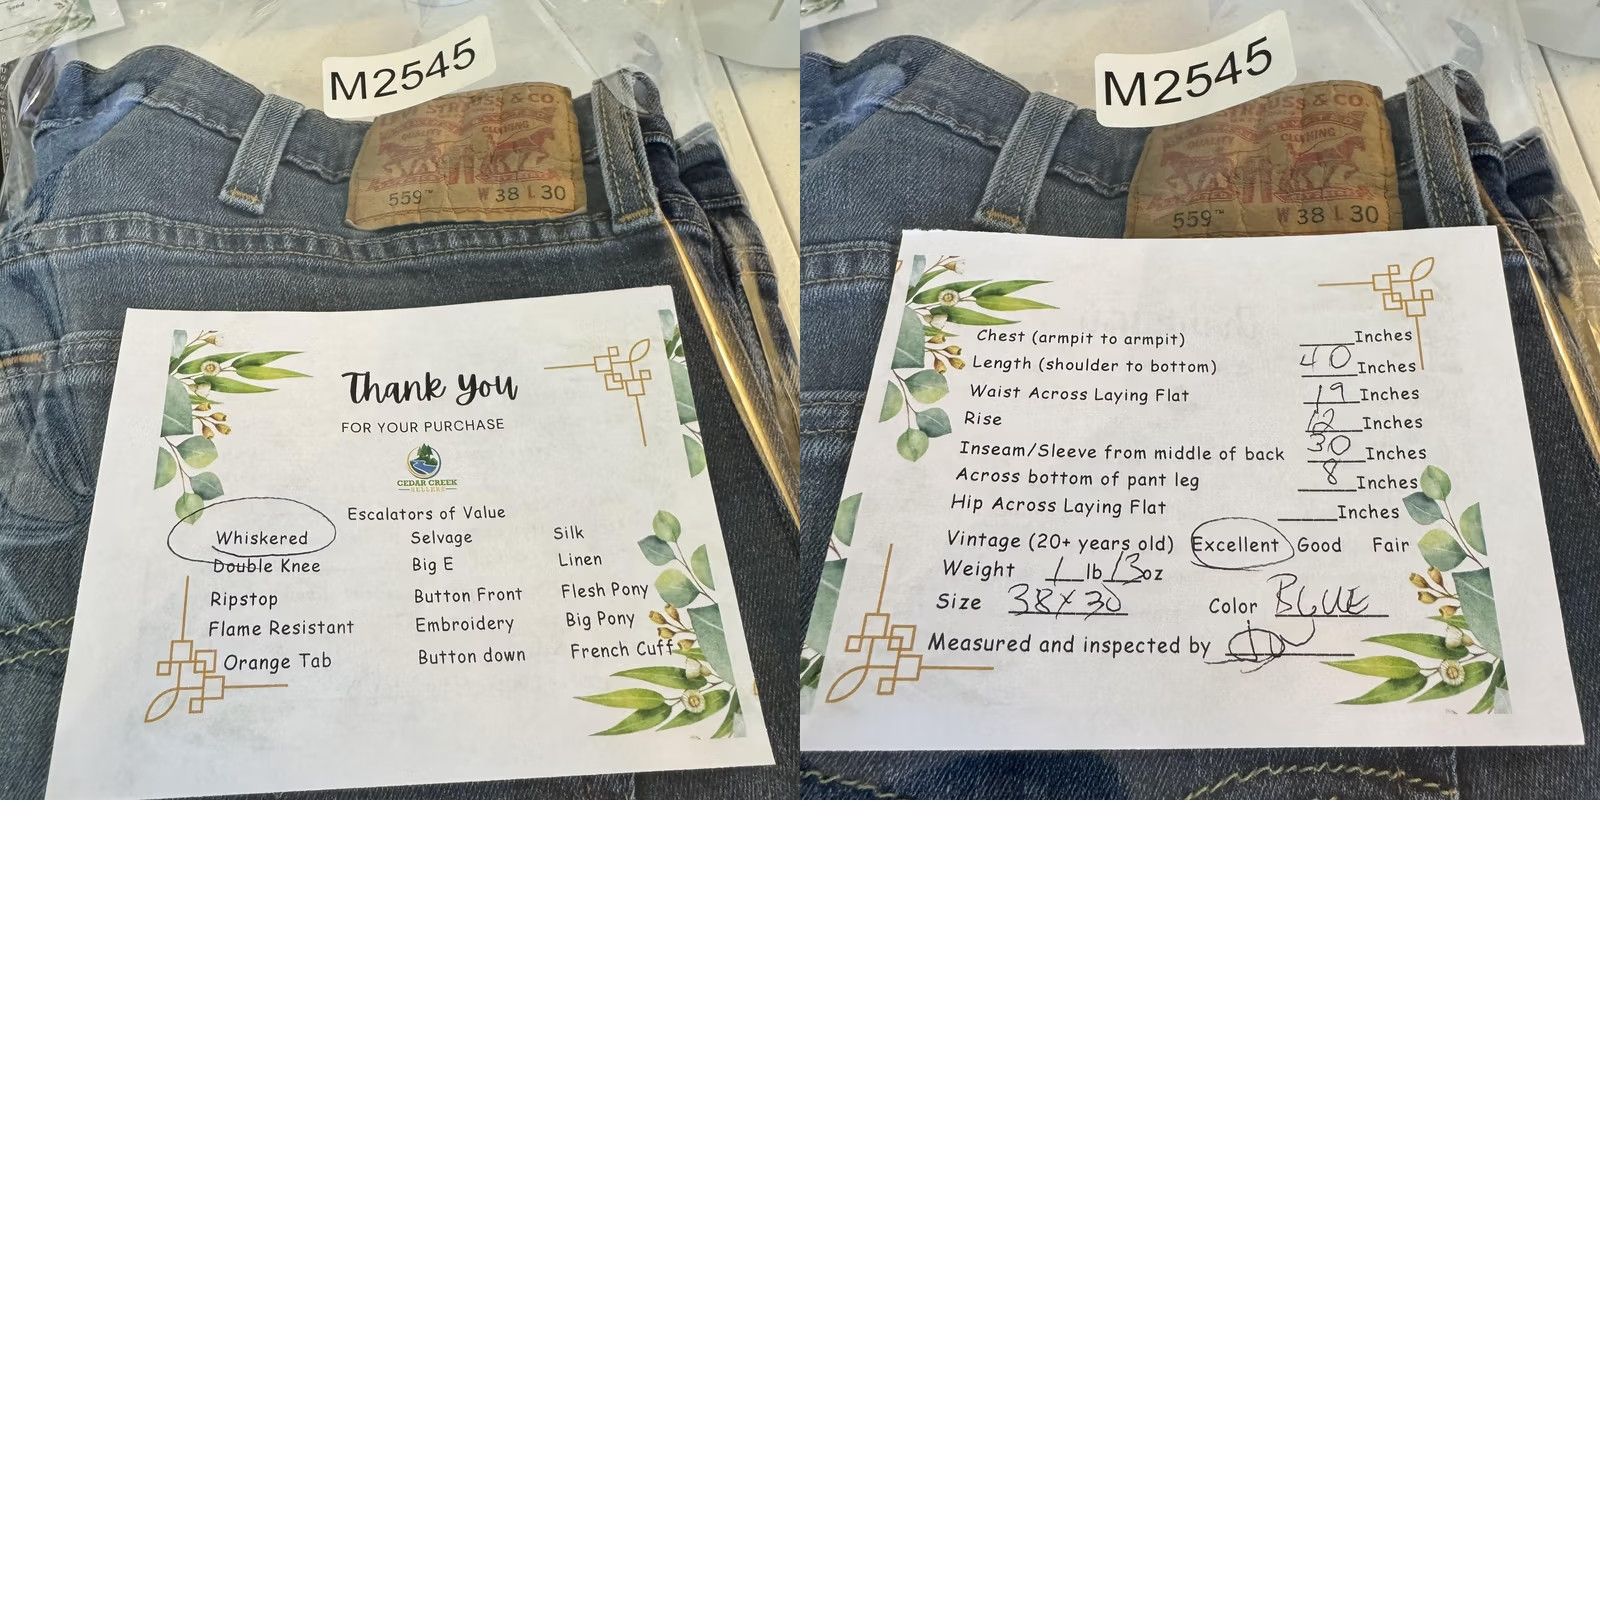 M2545
STRAUSS & CO.
QUALITY CLOTHING
559™ W 38 L 30
Thank You
FOR YOUR PURCHASE
CEDAR CREEK
SELLERS
Escalators of Value
Whiskered Selvage Silk
Double Knee Big E Linen
Ripstop Button Front Flesh Pony
Flame Resistant Embroidery Big Pony
Orange Tab Button down French Cuff
M2545
USS & CO.
QUALITY CLOTHING
559™ W 38 L 30
Chest (armpit to armpit) ____Inches
Length (shoulder to bottom) 40 Inches
Waist Across Laying Flat 19 Inches
Rise 12 Inches
Inseam/Sleeve from middle of back 30 Inches
Across bottom of pant leg 8 Inches
Hip Across Laying Flat ____Inches
Vintage (20+ years old) Excellent Good Fair
Weight 1 lb 13 oz
Size 38x30 Color BLUE
Measured and inspected by